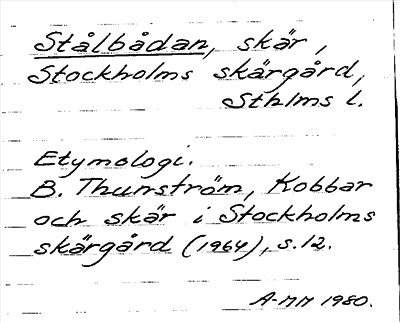 Stålbådan, skär,
Stockholms skärgård,
Sthlms l.
Etymologi.
B. Thunström, Kobbar
och skär i Stockholms
skärgård (1964), s.12.
A-MM 1980.